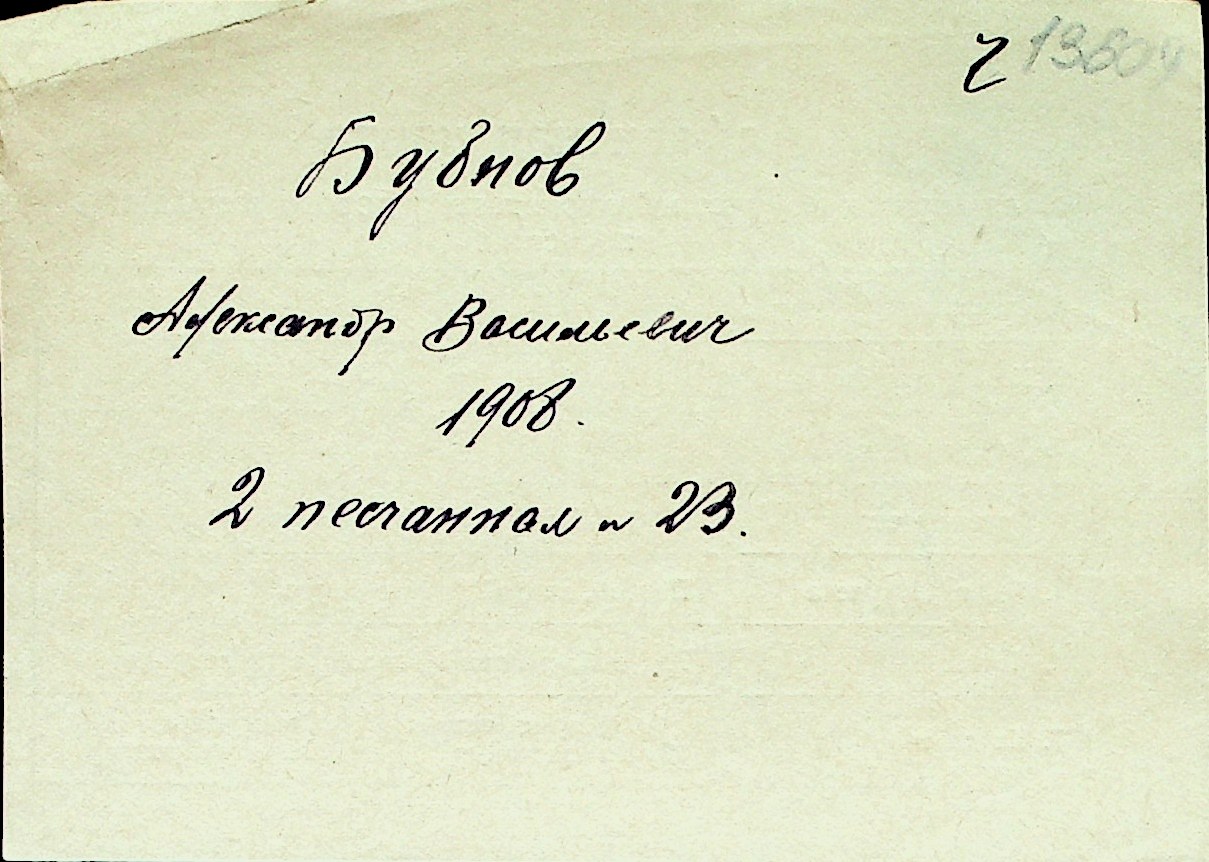 г 13604
Бубнов
Александр Васильевич
1908.
2 песчанная 23.